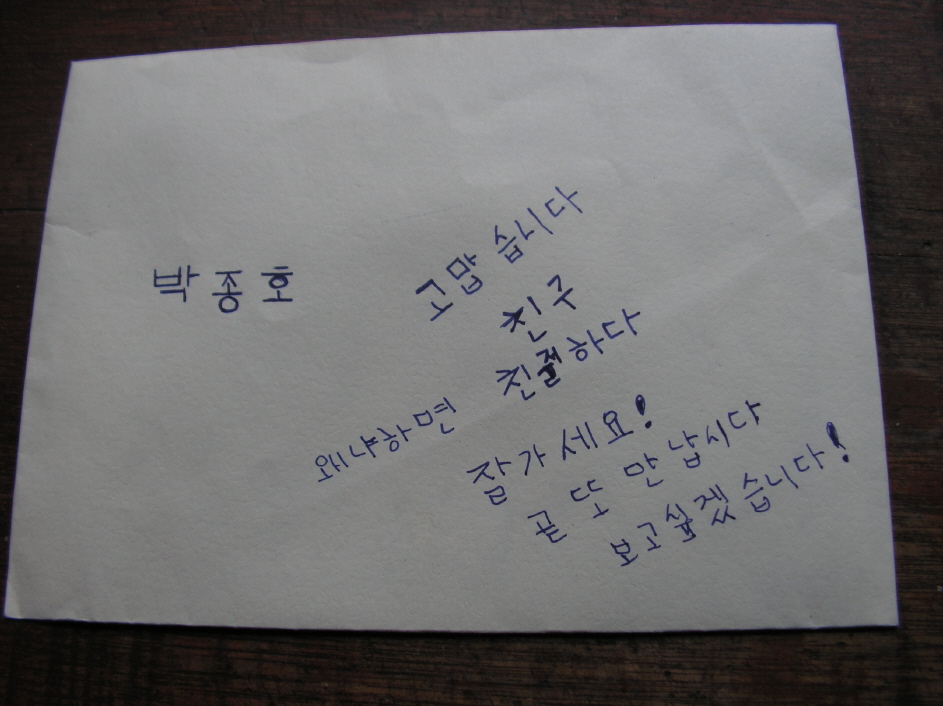 박종호
고맙습니다
친구
왜냐하면 친절하다
잘가세요!
곧 또 만납시다
보고싶겠습니다!